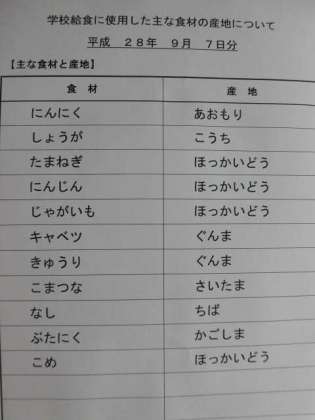 学校給食に使用した主な食材の産地について
平成　２８年　９月　７日分
【主な食材と産地】
食　材　産　地
にんにく　あおもり
しょうが　こうち
たまねぎ　ほっかいどう
にんじん　ほっかいどう
じゃがいも　ほっかいどう
キャベツ　ぐんま
きゅうり　ぐんま
こまつな　さいたま
なし　ちば
ぶたにく　かごしま
こめ　ほっかいどう